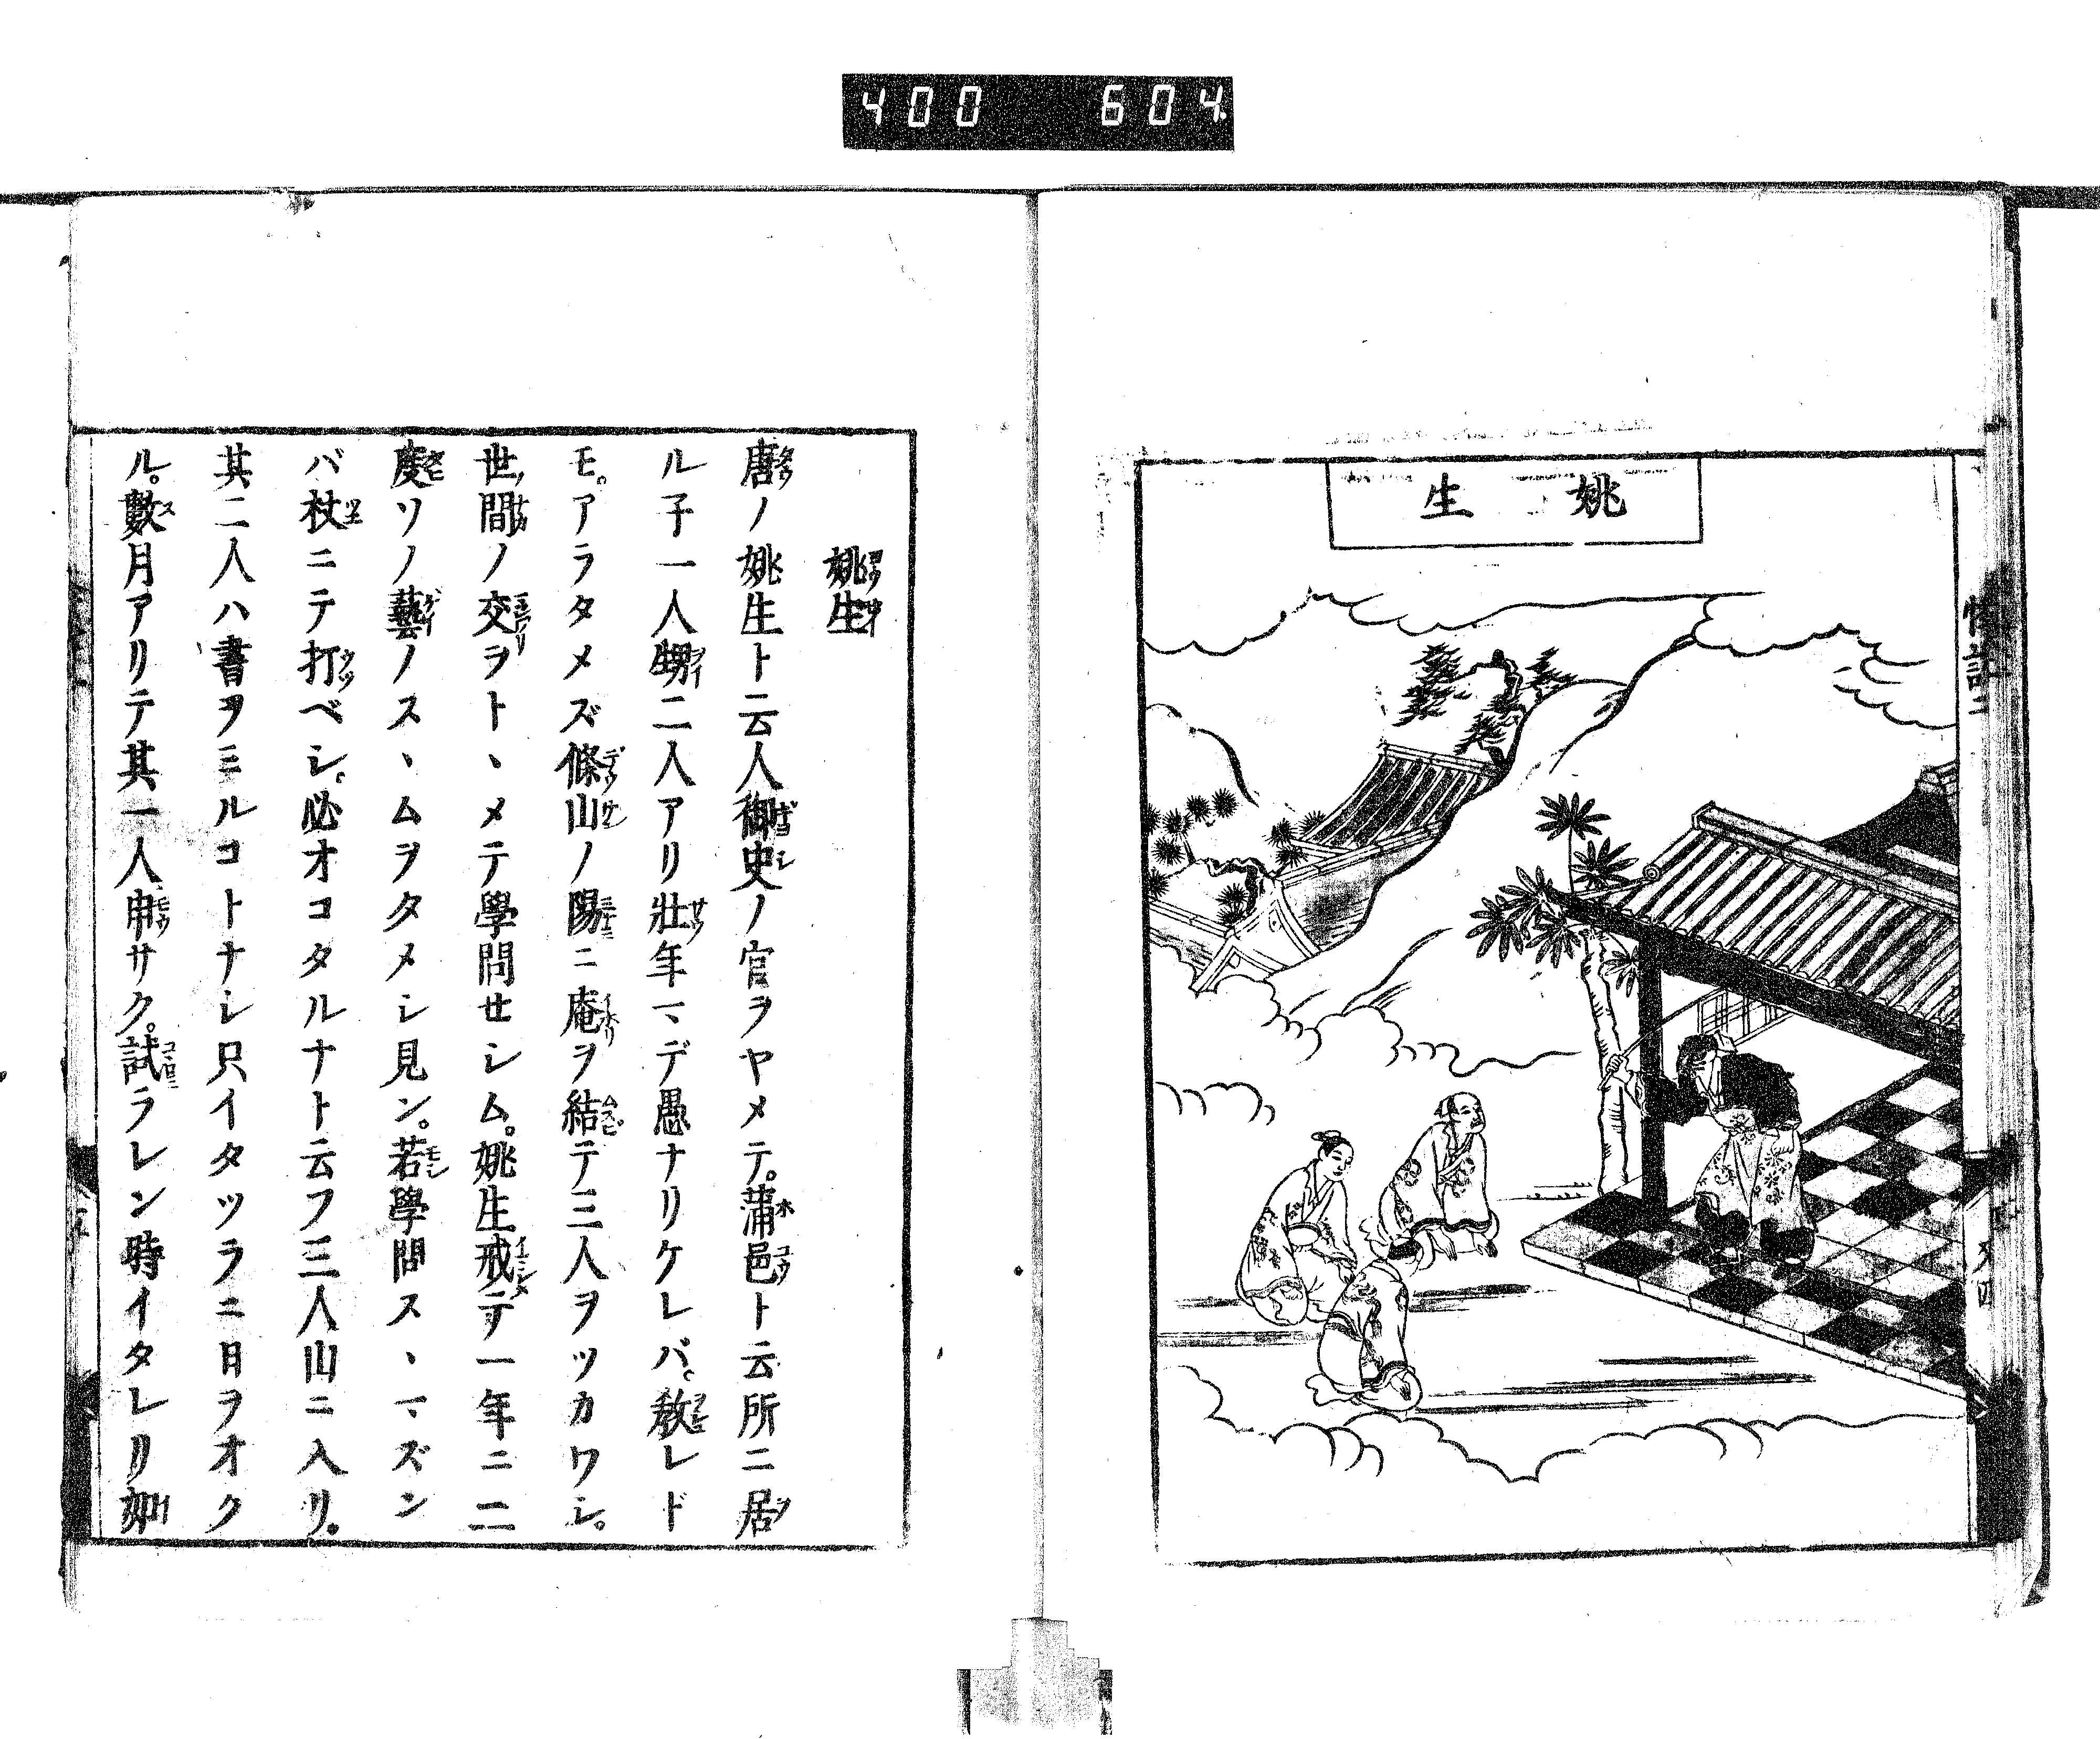 400 604
姚生
怪記二
又四
姚生
唐ノ姚生ト云人御史ノ官ヲヤメテ。蒲邑ト云所ニ居
ル子一人甥二人アリ壯年マデ愚ナリケレバ。敎レド
モ。アラタメズ條山ノ陽ニ庵ヲ結テ三人ヲツカワシ。
世間ノ交ヲトヽメテ學問せシム。姚生戒テ一年ニ二
度ソノ藝ノスヽムヲタメシ見ン。若學問スヽマズン
バ杖ニテ打ベシ。必オコタルナト云フ三人山ニ入リ。
其二人ハ書ヲミルコトナシ只イタツラニ日ヲオク
ル。數月アリテ其一人申サク。試ラレン時イタレリ如